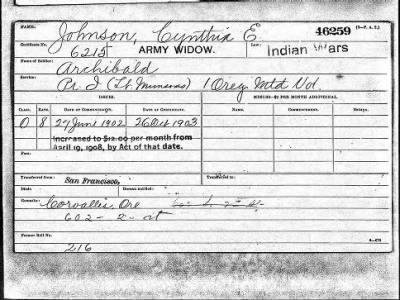 NAME: Johnson, Cynthia E. 46259 (3-P. A. T.)
Certificate No. 6215 ARMY WIDOW. Law: Indian Wars
Name of Soldier: Archibald
Service: Pr. I (Lt. ) 1 Oreg Mtd Vol.
ISSUES. MINORS—$2 PER MONTH ADDITIONAL.
CLASS. RATE. DATE OF COMMENCEMENT. DATE OF CERTIFICATE. NAME. COMMENCEMENT. ENDING.
O 8 27 June 1902 26 Oct 1903
Increased to $12.00 per month from
April 19, 1908, by Act of that date.
Fee:
Transferred from: San Francisco,
Died: Bureau notified:
Remarks: Corvallis, Ore
602 - 2 - st
Former Roll No.
216